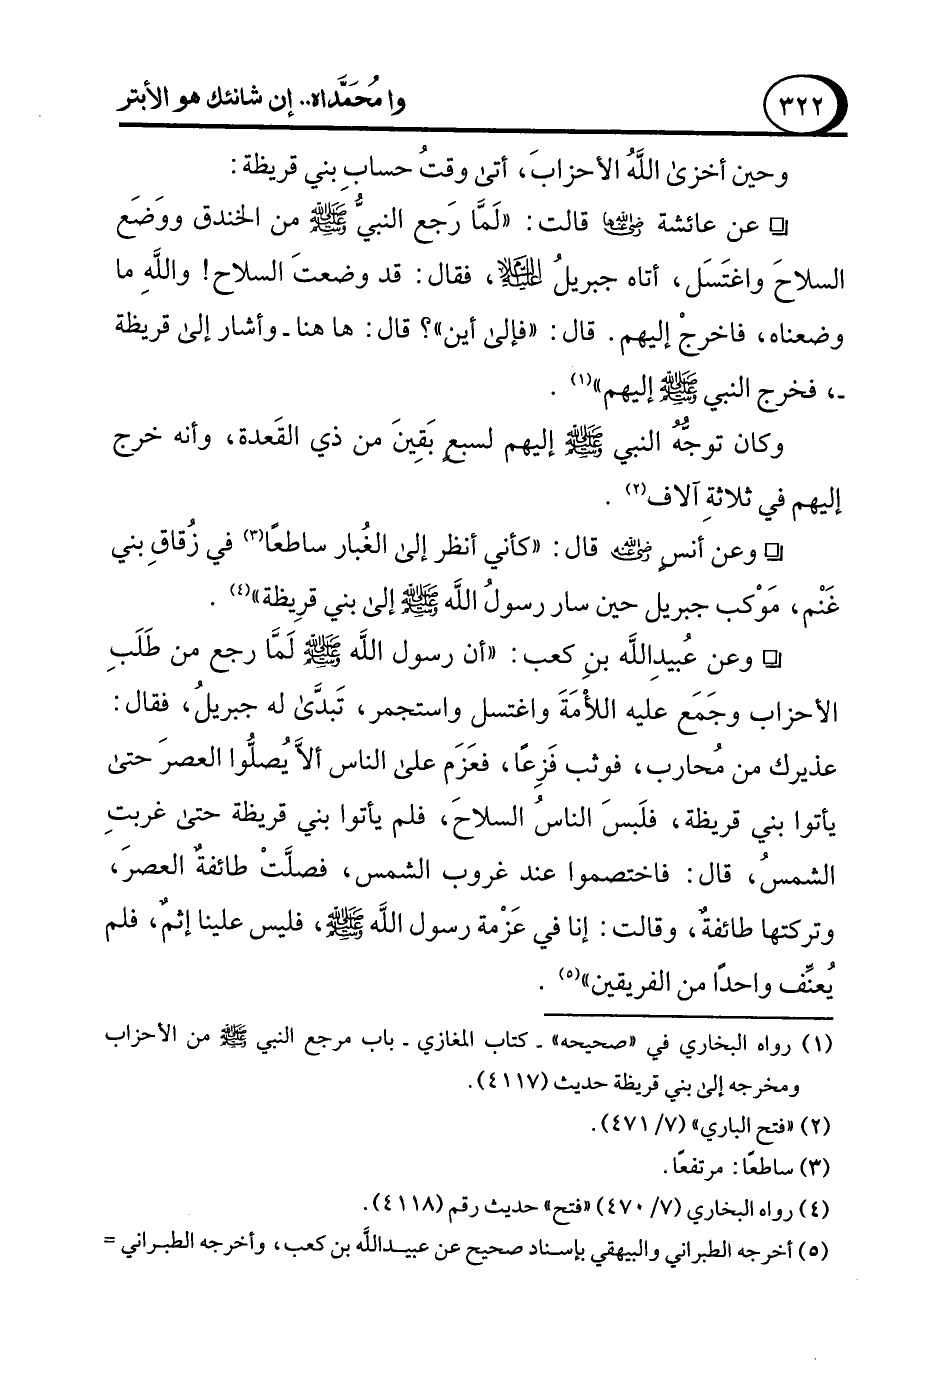 ٣٢٢
وا مُحَمَّداه.. إن شانئك هو الأبتر
وحين أخزىٰ اللَّهُ الأحزابَ، أتىٰ وقتُ حسابِ بني قريظة :
❏ عن عائشة رضي الله عنها قالت : «لَمَّا رَجع النبيُّ ﷺ من الخندق ووَضَع
السلاحَ واغتَسَل، أتاه جبريلُ عليه السلام، فقال : قد وضعتَ السلاح! واللَّهِ ما
وضعناه، فاخرجْ إليهم. قال : «فإلىٰ أين»؟ قال : ها هنا ـ وأشار إلىٰ قريظة
ـ، فخرج النبي ﷺ إليهم»(١) .
وكان توجُّهُ النبي ﷺ إليهم لسبعٍ بَقِينَ من ذي القَعدة، وأنه خرج
إليهم في ثلاثةِ آلاف(٢) .
❏ وعن أنسٍ رضي الله عنه قال : «كأني أنظر إلىٰ الغُبار ساطعًا(٣) في زُقاقِ بني
غَنْم، مَوْكب جبريل حين سار رسولُ اللَّه ﷺ إلىٰ بني قرِيظة»(٤) .
❏ وعن عُبيدِاللَّه بنِ كعب : «أن رسول اللَّه ﷺ لَمَّا رجع من طَلَبِ
الأحزاب وجَمَع عليه اللأْمَةَ واغتسل واستجمر، تَبدَّىٰ له جبريلُ، فقال :
عذيرك من مُحارب، فوثب فَزِعًا، فعَزَم علىٰ الناس ألاَّ يُصلُّوا العصرَ حتىٰ
يأتوا بني قريظة، فلَبسَ الناسُ السلاحَ، فلم يأتوا بني قريظة حتىٰ غربتِ
الشمسُ، قال : فاختصموا عند غروب الشمس، فصلَّتْ طائفةٌ العصرَ،
وتركتها طائفةٌ، وقالت : إنا في عَزْمة رسول اللَّه ﷺ، فليس علينا إثمٌ، فلم
يُعنِّف واحدًا من الفريقين»(٥) .
(١) رواه البخاري في «صحيحه» ـ كتاب المغازي ـ باب مرجع النبي ﷺ من الأحزاب
ومخرجه إلىٰ بني قريظة حديث (٤١١٧).
(٢) «فتح الباري» (٧/ ٤٧١).
(٣) ساطعًا : مرتفعًا.
(٤) رواه البخاري (٧/ ٤٧٠) «فتح» حديث رقم (٤١١٨).
(٥) أخرجه الطبراني والبيهقي بإسناد صحيح عن عبيداللَّه بن كعب، وأخرجه الطبراني =